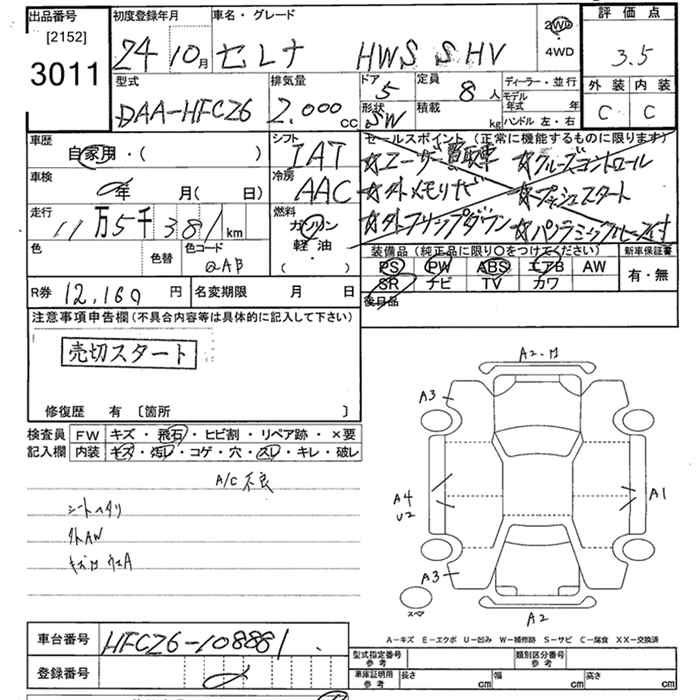 出品番号
[2152]
3011
初度登録年月
24 10月
車名・グレード
セレナ HWS S HV
2WD
4WD
評価点
3.5
外装 内装
C C
型式
DAA-HFC26
排気量
2.000 cc
ドア
5
形状
SW
定員
8 人
積載
kg
ディーラー・並行
モデル年式 年
ハンドル 左・右
車歴
自家用・( )
シフト
IAT
セールスポイント (正常に機能するものに限ります)
☆ユーザー買取車 ☆クルーズコントロール
☆プッシュスタート
☆外フリップダウン
車検
年 月( 日)
冷房
AAC
走行
11万5千381km
燃料
ガソリン
軽油・
( )
色
色替
色コード
QAB
装備品 (純正品に限り○をつけてください)
PS PW ABS エアB AW
SR ナビ TV カワ
新車保証書
有・無
R券 12,160 円
名変期限 月 日
後日品
注意事項申告欄 (不具合内容等は具体的に記入して下さい)
売切スタート
修復歴 有 〔箇所 〕
検査員
記入欄
FW キズ・飛石・ヒビ割・リペア跡・×要
内装 キズ・汚レ・コゲ・穴・スレ・キレ・破レ
A/C 不良
シートヘタリ
外AW
A2
A3
A4
U2
A1
A3
A2
スペア
A-キズ E-エクボ U-凹み W-補修跡 S-サビ C-腐食 XX-交換済
車台番号 HFC26-108881
登録番号
型式指定番号
参考
類別区分番号
参考
車庫証明用
参考
長さ cm 幅 cm 高さ cm